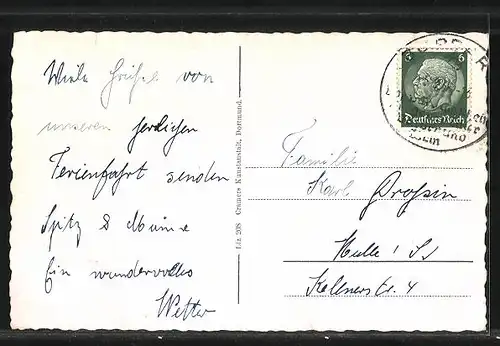 Viele Grüße von
unseren herrlichen
Ferienfahrt senden
Spitz &
Ein wundervolles
Wetter
Cramers Kunstanstalt, Dortmund.
6 6
Deutsches Reich
Familie
Karl
Halle / S
Kellnerstr. 4